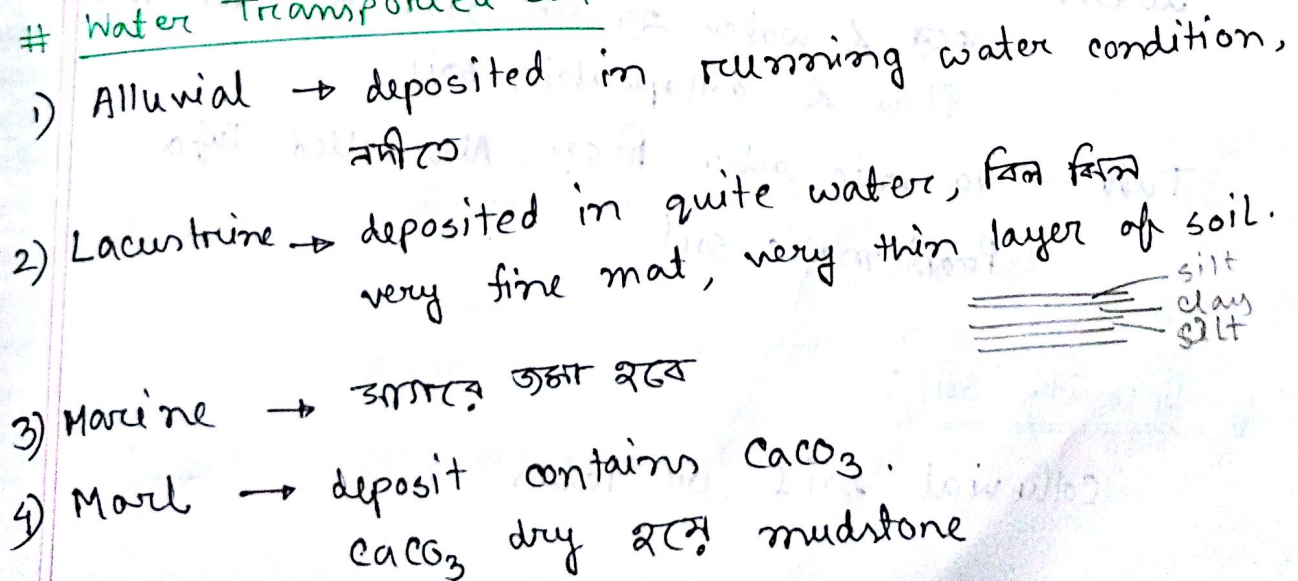 # Water Transported
1) Alluvial → deposited in running water condition,
নদীতে
2) Lacustrine → deposited in quite water, বিল ঝিল
very fine mat, very thin layer of soil.
silt
clay
silt
3) Marine → সাগরে জমা হবে
4) Marl → deposit contains CaCO3.
CaCO3 dry হয়ে mudstone